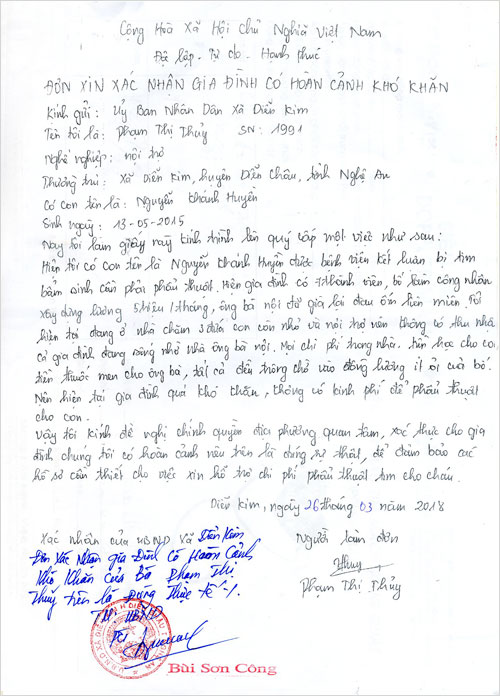 Cộng Hoà Xã Hội Chủ Nghĩa Việt Nam
Độ lập - Tự do - Hạnh phúc
ĐƠN XIN XÁC NHẬN GIA ĐÌNH CÓ HOÀN CẢNH KHÓ KHĂN
Kính gửi: Uỷ Ban Nhân Dân Xã Diễn Kim
Tên tôi là: Phạm Thị Thuỷ SN: 1991
Nghề nghiệp: nội trợ
Thường trú: Xã Diễn Kim, huyện Diễn Châu, tỉnh Nghệ An
Có con tên là: Nguyễn Khánh Huyền
Sinh ngày: 13-05-2015
Nay tôi làm giấy này kính trình lên quý cấp một việc như sau:
Hiện tôi có con tên là Nguyễn Khánh Huyền được bệnh viện kết luận bị tim
bẩm sinh cần phải phẫu thuật. Hiện gia đình có 7 thành viên, bố làm công nhân
xây dựng lương 5 triệu/tháng, ông bà nội đã già lại đau ốm liên miên, Tôi
hiện tôi đang ở nhà chăm 3 đứa con còn nhỏ và nội trợ nên không có thu nhập
cả gia đình đang sống nhờ nhà ông bà nội. Mọi chi phí trong nhà, tiền học cho con
tiền thuốc men cho ông bà, tất cả đều trông chờ vào đồng lương ít ỏi của bố.
Nên hiện tại gia đình quá khó khăn, không có kinh phí để phẫu thuật
cho con.
Vậy tôi kính đề nghị chính quyền địa phương quan tâm, xác thực cho gia
đình chúng tôi có hoàn cảnh nêu trên là đúng sự thật, để đảm bảo các
hồ sơ cần thiết cho việc xin hỗ trợ chi phí phẫu thuật tim cho cháu.
Diễn Kim, ngày 26 tháng 03 năm 2018
Xác nhận của UBND Xã Diễn Kim
Người làm đơn
Đơn Xác Nhận gia Đình Có Hoàn Cảnh
Khó Khăn Của Bà Phạm Thị
Thuỷ trên là Đúng Thực tế./.
TM. UBND
Thuỷ
Phạm Thị Thủy
Bùi Son Công